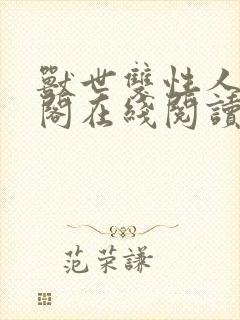 獸世雙性人
閣在綫閱讀
范荣謙